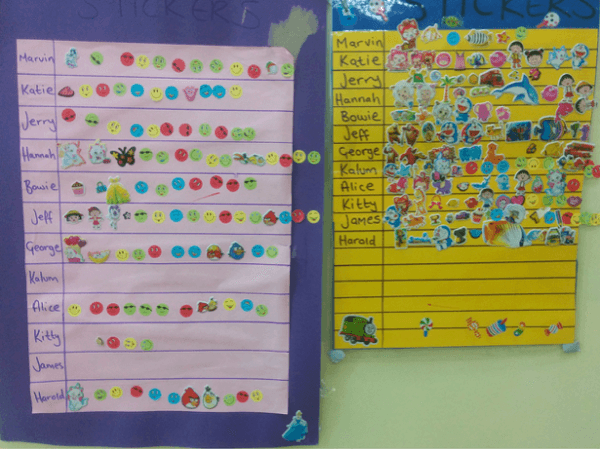 STICKERS
Marvin
Katie
Jerry
Hannah
Bowie
Jeff
George
Kalum
Alice
Kitty
James
Harold
STICKERS
Marvin
Katie
Jerry
Hannah
Bowie
Jeff
George
Kalum
Alice
Kitty
James
Harold